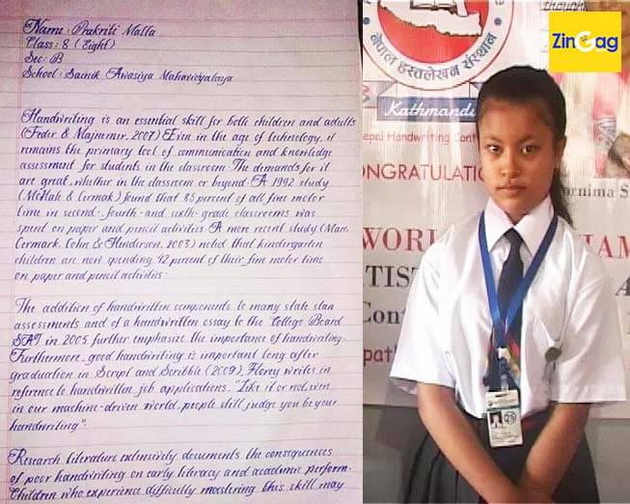 Name : Prakriti Malla
Class : 8 (Eight)
Sec : B
School : Sainik Awasiya Mahavidyalaya
Handwriting is an essential skill for both children and adults
(Feder & Majnemer, 2007) Even in the age of technology, it
remains the primary tool of communication and knowledge
assessment for students in the classroom The demands for it
are great, whether in the classroom or beyond A 1992 study
(McHale & Cermak) found that 85 percent of all fine motor
time in second- fourth- and sixth-grade classrooms was
spent on paper and pencil activities A more recent study (Marr,
Cermark, Cohn & Henderson, 2003) noted that kindergarten
children are now spending 42 percent of their fine motor time
on paper and pencil activities
The addition of handwritten components to many state
assessments and of a handwritten essay to the "College Board
SAT" in 2005 further emphasize the importance of handwriting
Furthermore, good handwriting is important long after
graduation in Script and Scribble (2009), Florey writes in
reference to handwritten job applications, "Like it or not, even
in our machine-driven world, people still judge you by your
handwriting"
Research literature extensively documents the consequences
of poor handwriting on early literacy and academic perform-
Children who experience difficulty mastering this skill may
नेपाल हस्तलेखन संस्थान
Kathmandu
Nepal Handwriting Cont
CONGRATULATIO
though
rnima S
WORL
HAM
TIST
Con
pat
ZinGag